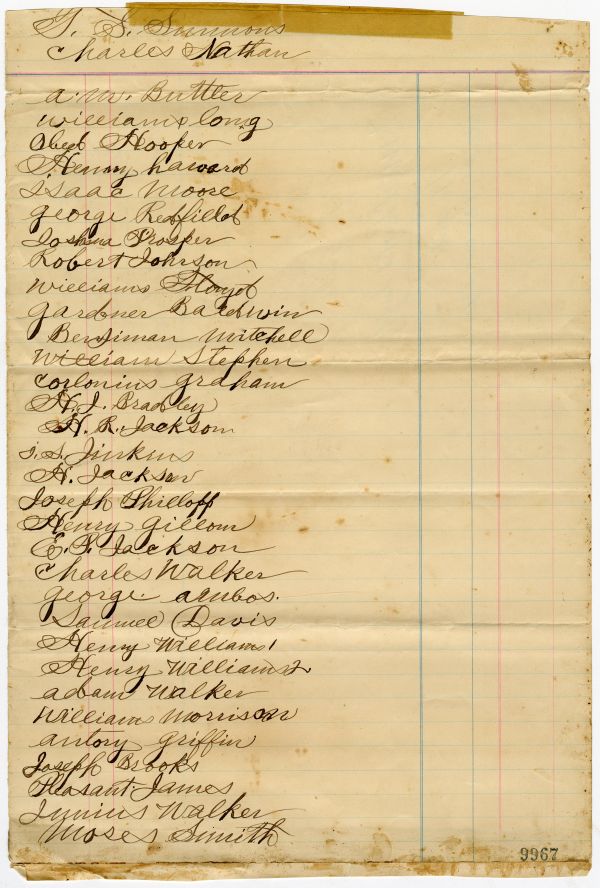 T. S. Simmons
Charles Nathan
a. W. Buttler
William Long
Obed Hooper
Henry haward
Isaac Moore
george Redfilled
Joshua Prosper
Robert Johnson
Williams Floyd
gardner Baldwin
Benjiman Mitchell
William Stephen
Corlonius graham
H. J. Bradley
H. R. Jackson
J. S. Jinkins
H. Jackson
Joseph Philloff
Henry gillom
E. P. Jackson
Charles Walker
george ambos.
Samuel Davis
Henry Williams 1
Henry Williams 2
adam Walker
William Morrison
antory griffin
Joseph Brooks
Pleasant James
Junius Walker
Moses Smith
9967